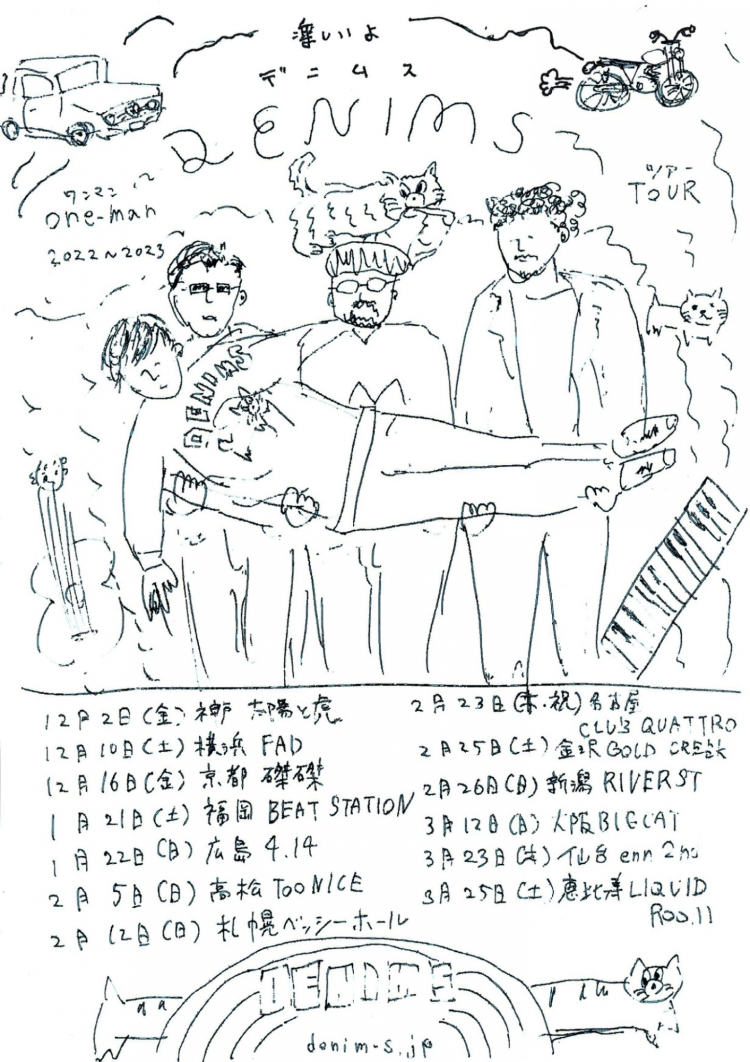 凄いよ
デニムス
DENIMS
ワンマン
one-man
2022~2023
ツアー
TOUR
DENIMS
12月2日(金)神戸 太陽と虎
12月10日(土)横浜 FAD
12月16日(金)京都 磔磔
1月21日(土)福岡 BEAT STATION
1月22日(日)広島 4.14
2月5日(日)高松 TOONICE
2月12日(日)札幌ベッシーホール
2月23日(木・祝)名古屋
CLUB QUATTRO
2月25日(土)金沢GOLD CREEK
2月26日(日)新潟 RIVERST
3月12日(日)大阪BIGCAT
3月23日(木)仙台 enn 2nd
3月25日(土)恵比寿LIQUID
ROOM
DENIMS
denim-s.jp